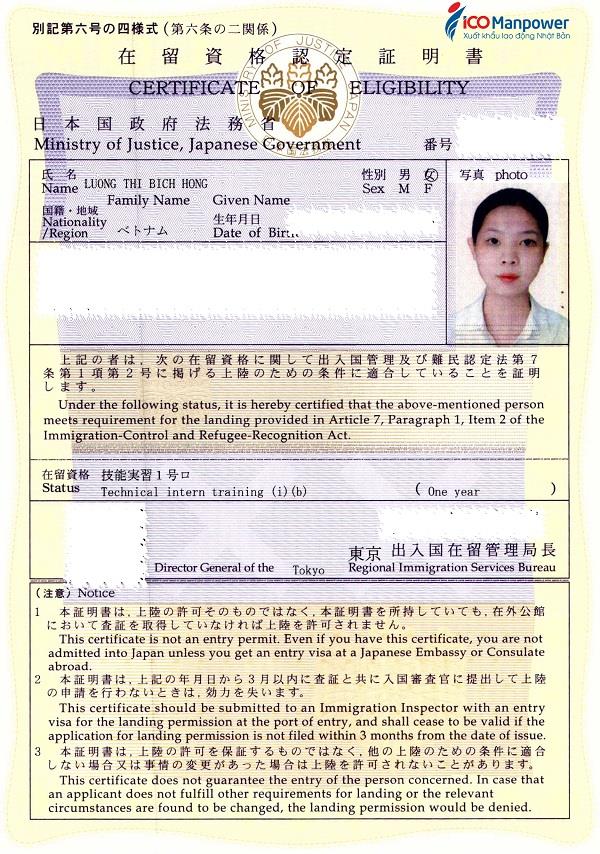 iCO Manpower
Xuất khẩu lao động Nhật Bản
別記第六号の四様式（第六条の二関係）
在留資格認定証明書
CERTIFICATE OF ELIGIBILITY
MINISTRY OF JUSTICE JAPAN
日本国政府法務省
Ministry of Justice, Japanese Government 番号
氏名 性別 男 女 写真 photo
Name LUONG THI BICH HONG Sex M F
Family Name Given Name
国籍・地域 生年月日
Nationality Date of Birth
/Region ベトナム
上記の者は、次の在留資格に関して出入国管理及び難民認定法第7
条第1項第2号に掲げる上陸のための条件に適合していることを証明
します。
Under the following status, it is hereby certified that the above-mentioned person
meets requirement for the landing provided in Article 7, Paragraph 1, Item 2 of the
Immigration-Control and Refugee-Recognition Act.
在留資格 技能実習1号ロ
Status Technical intern training (i)(b) ( One year )
東京 出入国在留管理局長
Director General of the Tokyo Regional Immigration Services Bureau
（注意）Notice
1 本証明書は、上陸の許可そのものではなく、本証明書を所持していても、在外公館
において査証を取得していなければ上陸を許可されません。
This certificate is not an entry permit. Even if you have this certificate, you are not
admitted into Japan unless you get an entry visa at a Japanese Embassy or Consulate
abroad.
2 本証明書は、上記の年月日から3月以内に査証と共に入国審査官に提出して上陸
の申請を行わないときは、効力を失います。
This certificate should be submitted to an Immigration Inspector with an entry
visa for the landing permission at the port of entry, and shall cease to be valid if the
application for landing permission is not filed within 3 months from the date of issue.
3 本証明書は、上陸の許可を保証するものではなく、他の上陸のための条件に適合
しない場合又は事情の変更があった場合は上陸を許可されないことがあります。
This certificate does not guarantee the entry of the person concerned. In case that
an applicant does not fulfill other requirements for landing or the relevant
circumstances are found to be changed, the landing permission would be denied.